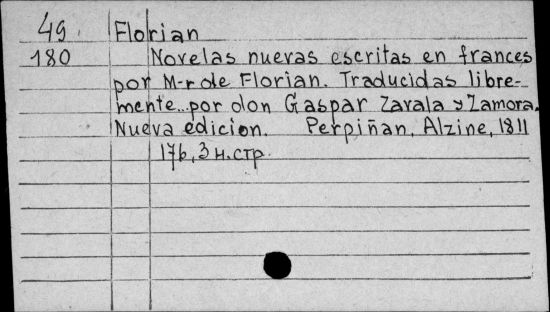 49. Florian
180 Novelas nuevas escritas en frances
por M-r de Florian. Traducidas libre-
mente... por don Gaspar Zavala y Zamora.
Nueva edicion. Perpiñan, Alzine, 1811
176, 3 н.стр.